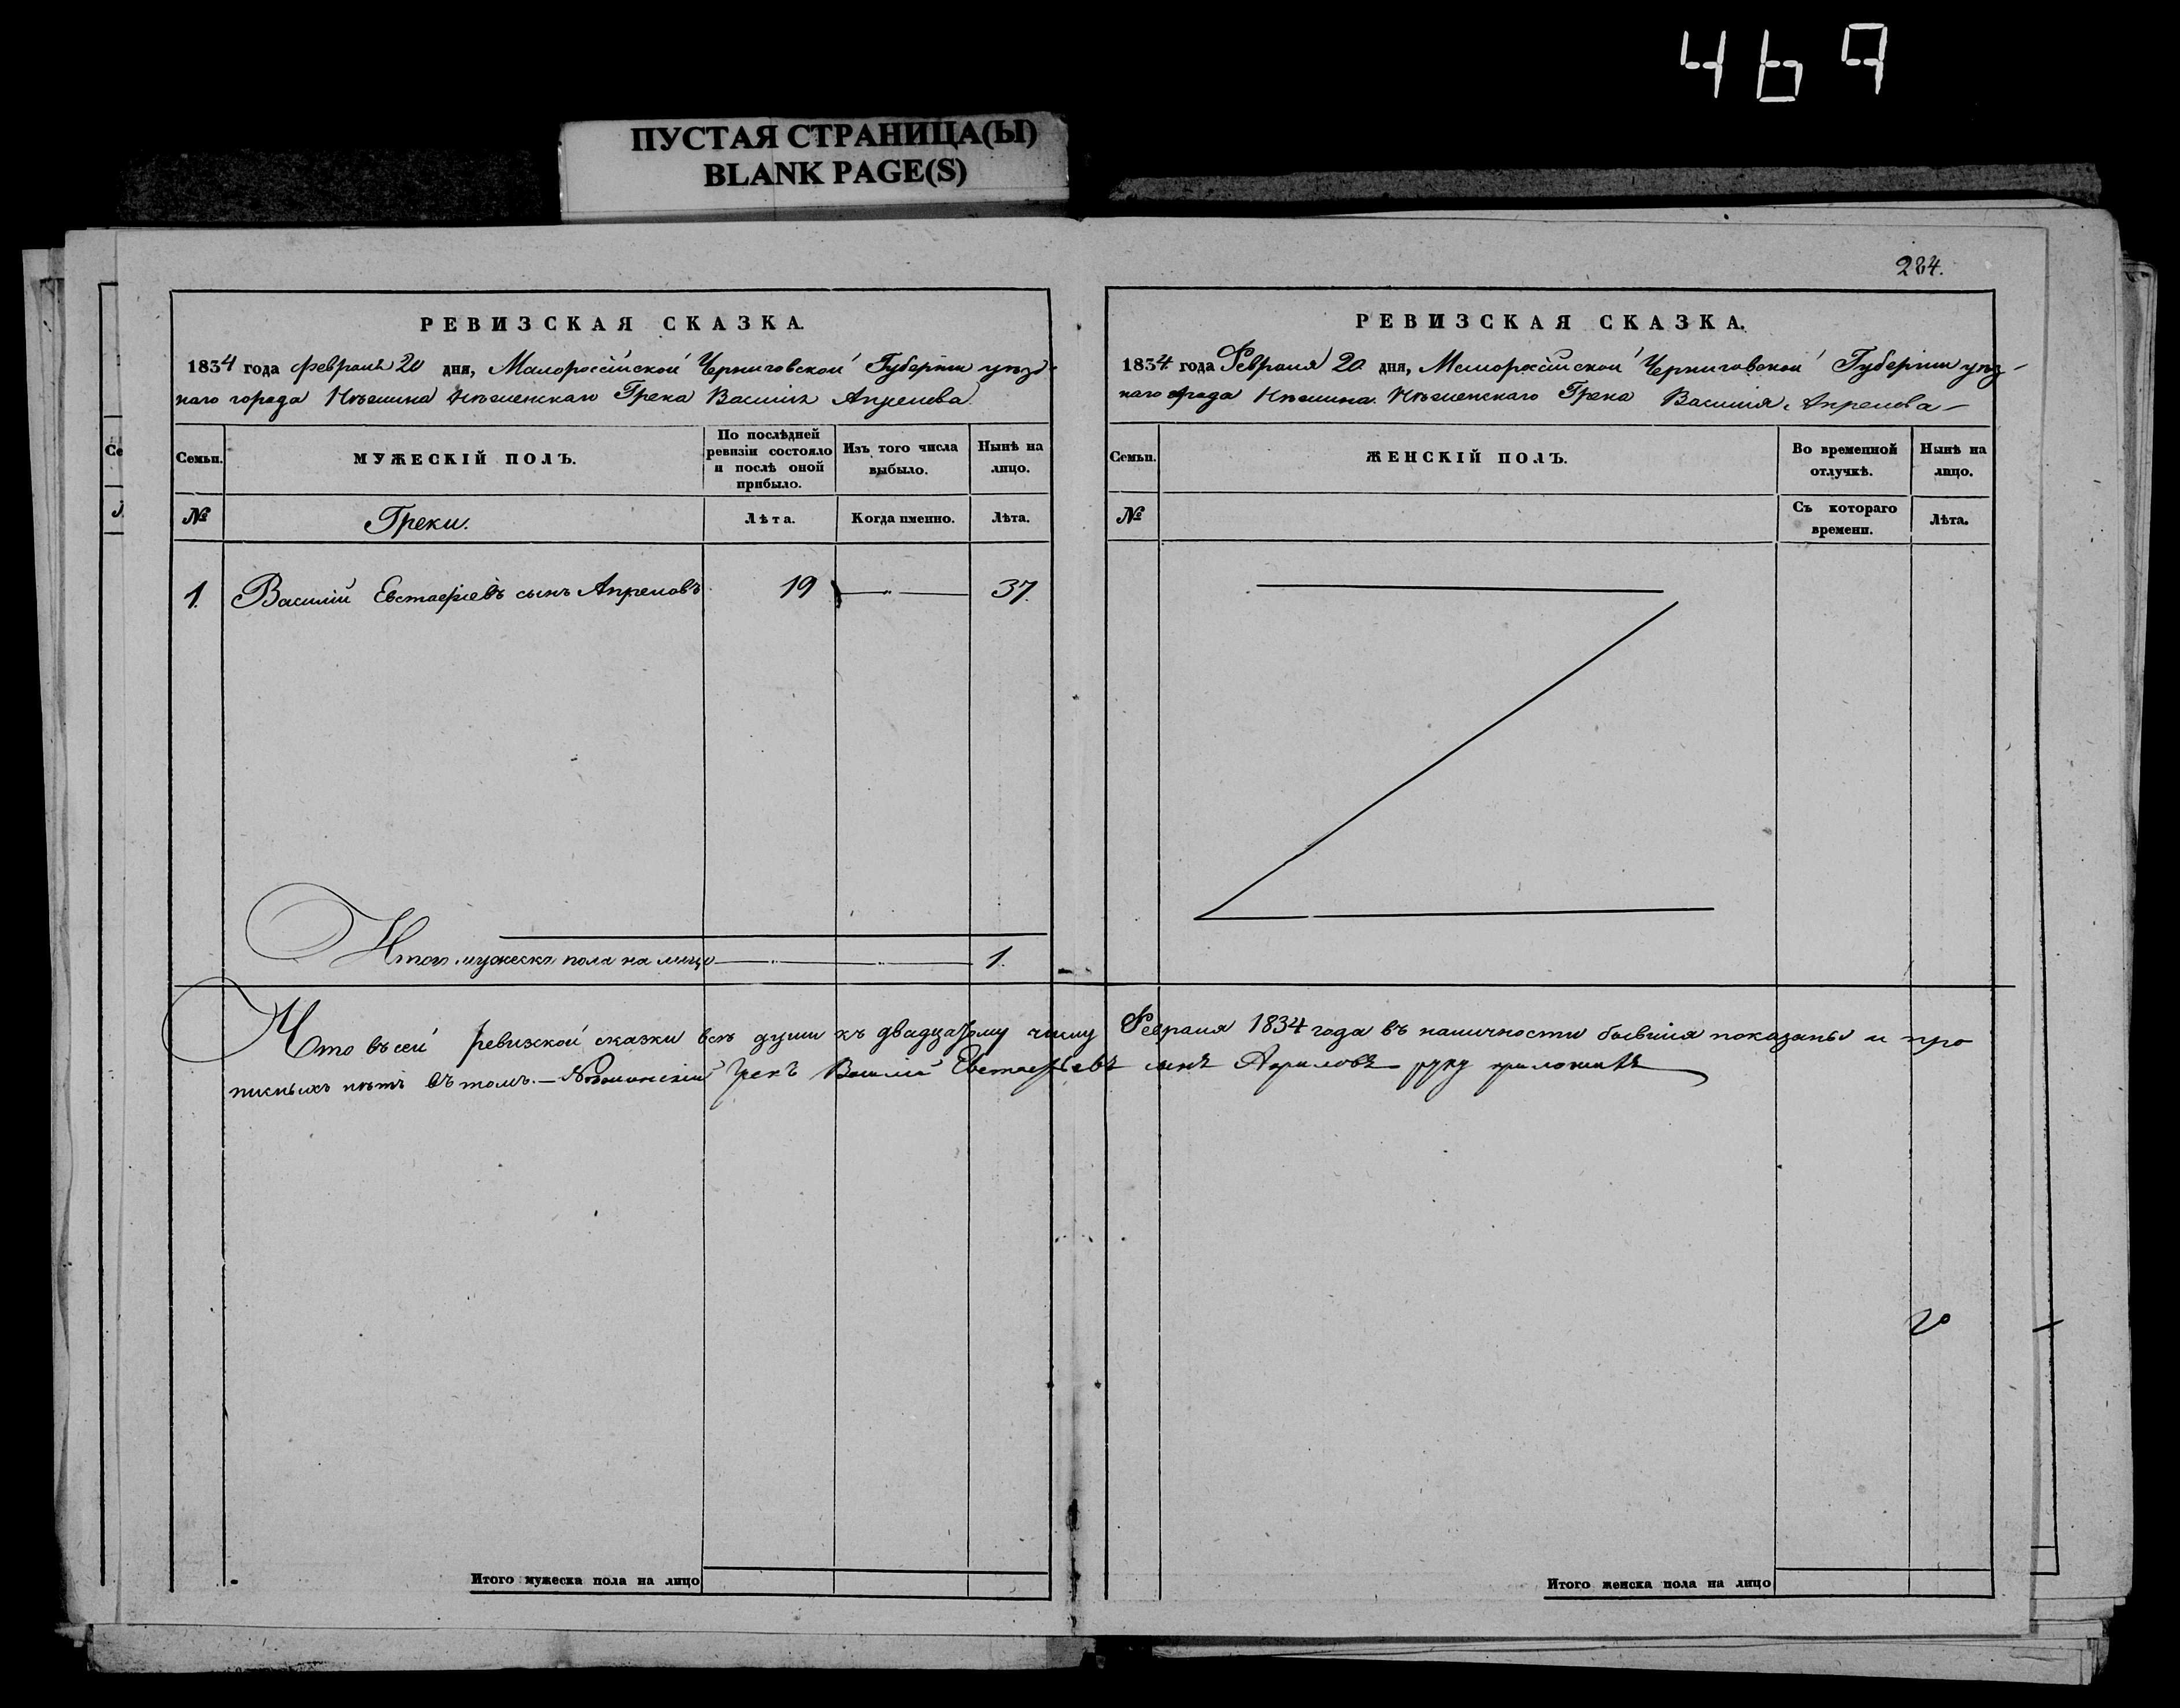 469
ПУСТАЯ СТРАНИЦА(Ы)
BLANK PAGE(S)
284.
РЕВИЗСКАЯ СКАЗКА.
1834 года февраля 20 дня, Малороссійской Черниговской Губерніи уѣзд-
наго города Нѣжина Нѣженскаго Грека Василія Априлова
Семьи.
МУЖЕСКІЙ ПОЛЪ.
По послѣдней ревизіи состояло и послѣ оной прибыло.
Изъ того числа выбыло.
Нынѣ на лицо.
№
Греки.
Лѣта.
Когда именно.
Лѣта.
1. Василій Евстафіевъ сынъ Апрѣловъ 19 37.
Итого мужеска пола на лицо 1.
РЕВИЗСКАЯ СКАЗКА.
1834 года Февраля 20 дня, Малороссійской Черниговской Губерніи уѣз-
наго города Нѣжина Нѣженскаго Грека Василія Апрелова
Семьи.
ЖЕНСКІЙ ПОЛЪ.
Во временной отлучкѣ.
Нынѣ на лицо.
№
Съ котораго времени.
Лѣта.
Что въ сей ревизской сказки всѣ души къ двадцатому числу Февраля 1834 года въ наличности бывшія показаны и про
писныхъ нѣтъ въ томъ. — Грекъ Василій Евстафіевъ сынъ Априловъ руку приложилъ
Итого мужеска пола на лицо
Итого женска пола на лицо